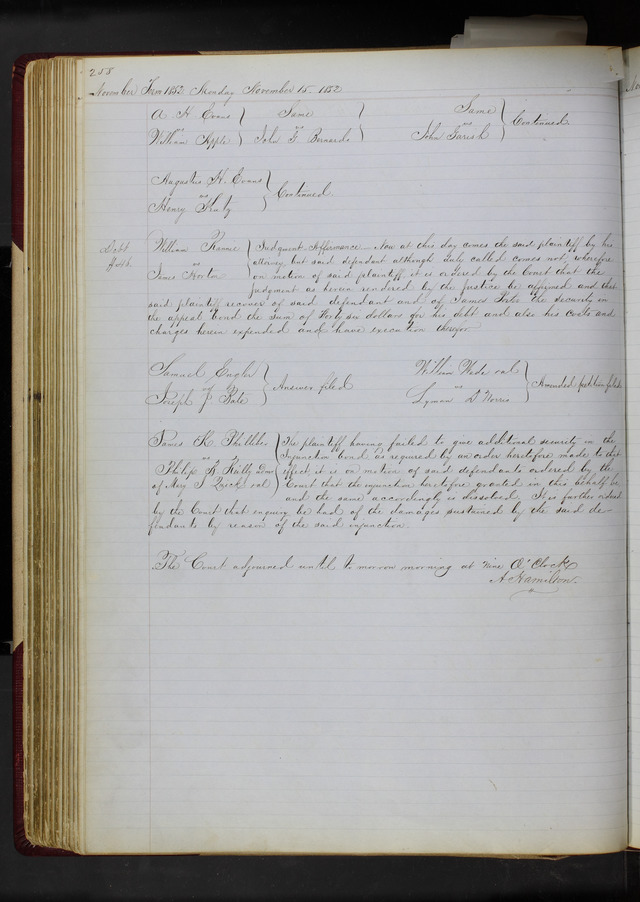 258
November Term 1852 Monday November 15. 1852
A H Evans
vs
William Apple
Same
vs
John F
Same
vs
John Parish
Continued
Augustus H. Evans
vs
Henry
Continued
Debt
William Rannie
vs
James Horton
Judgment Affirmance. Now at this day comes the said plaintiff by his
attorney but said defendant although duly called comes not, wherefore
on motion of said plaintiff it is ordered by the Court that the
judgment as herein rendered by the justice be affirmed and that
said plaintiff recover of said defendant and of James the security in
the appeal bond the sum of forty six dollars for his debt and also his costs and
charges herein expended and have execution therefor
Samuel Engler
vs
Joseph J
Answer filed
William Wade et al
vs
Lyman D Norris
Amended petition filed
James K.
vs
Philip R.
of Mary et al
The plaintiff having failed to give additional security in the
Injunction bond as required by an order heretofore made to that
effect, it is on motion of said defendants ordered by the
Court that the injunction heretofore granted in this behalf be
and the same accordingly is dissolved. It is further ordered
by the Court that enquiry be had of the damages sustained by the said de-
fendants by reason of the said injunction.
The Court adjourned until to morrow morning at nine O'Clock
A Hamilton.